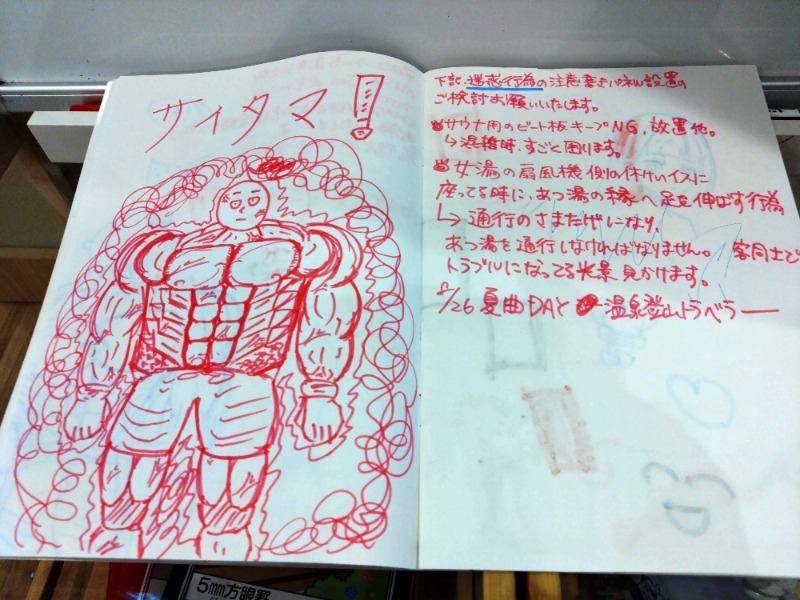 サイタマ!
下記、迷惑行為の注意書きパネル設置の
ご検討お願いいたします。
サウナ用のビート板キープNG、放置他。
↳混雑時、すごく困ります。
女湯の扇風機側の休けいイスに
座ってる時に、あつ湯の縁へ足を伸ばす行為
↳通行のさまたげになり、
あつ湯を通行しなければなりません。 客同士で
トラブルになってる光景見かけます。
/26 夏曲DAY 温泉登山トラベラー
5mm方眼罫